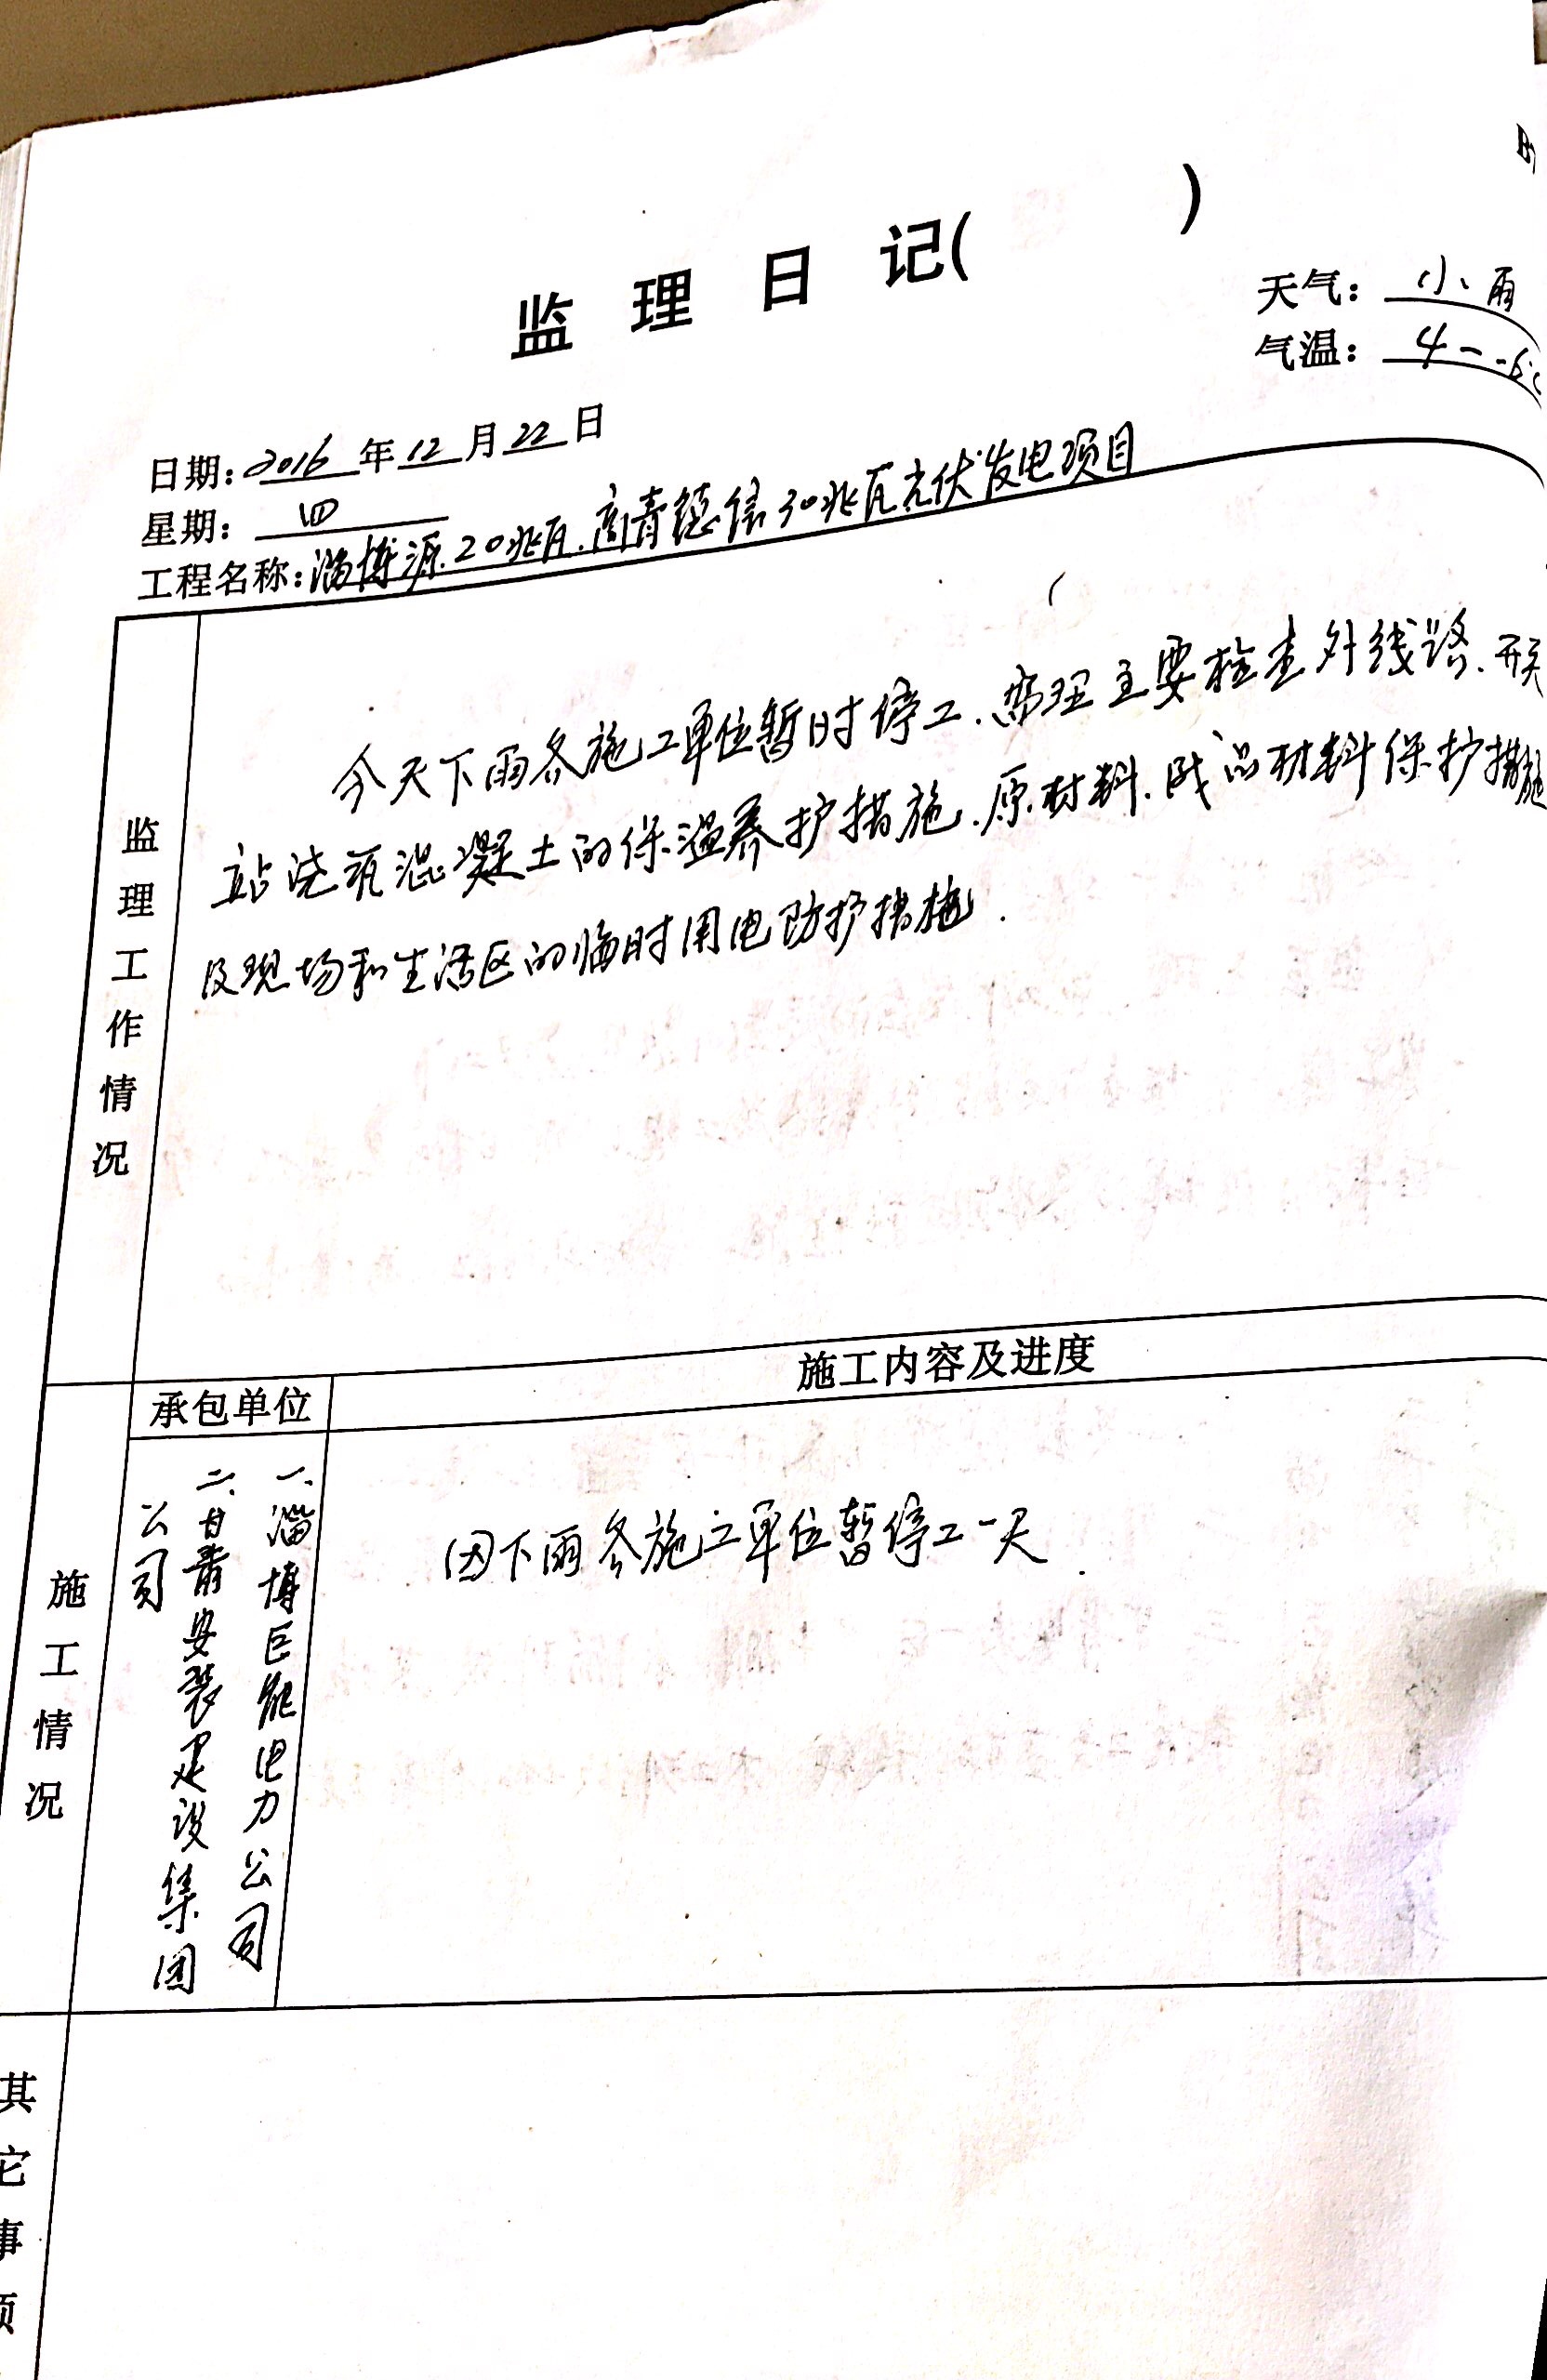 监理日记( )
天气：小雨
气温：4--6℃
日期：2016年12月22日
星期：四
工程名称：淄博源20兆瓦.高青德信30兆瓦光伏发电项目
监理工作情况
今天下雨各施工单位暂时停工.监理主要检查外线路.开关
站浇筑混凝土的保温养护措施.原材料.成品材料保护措施
及现场和生活区的临时用电防护措施.
施工情况
承包单位
施工内容及进度
一、淄博巨能电力公司
二、甘肃安装建设集团
公司
因下雨各施工单位暂停工一天.
其它事项